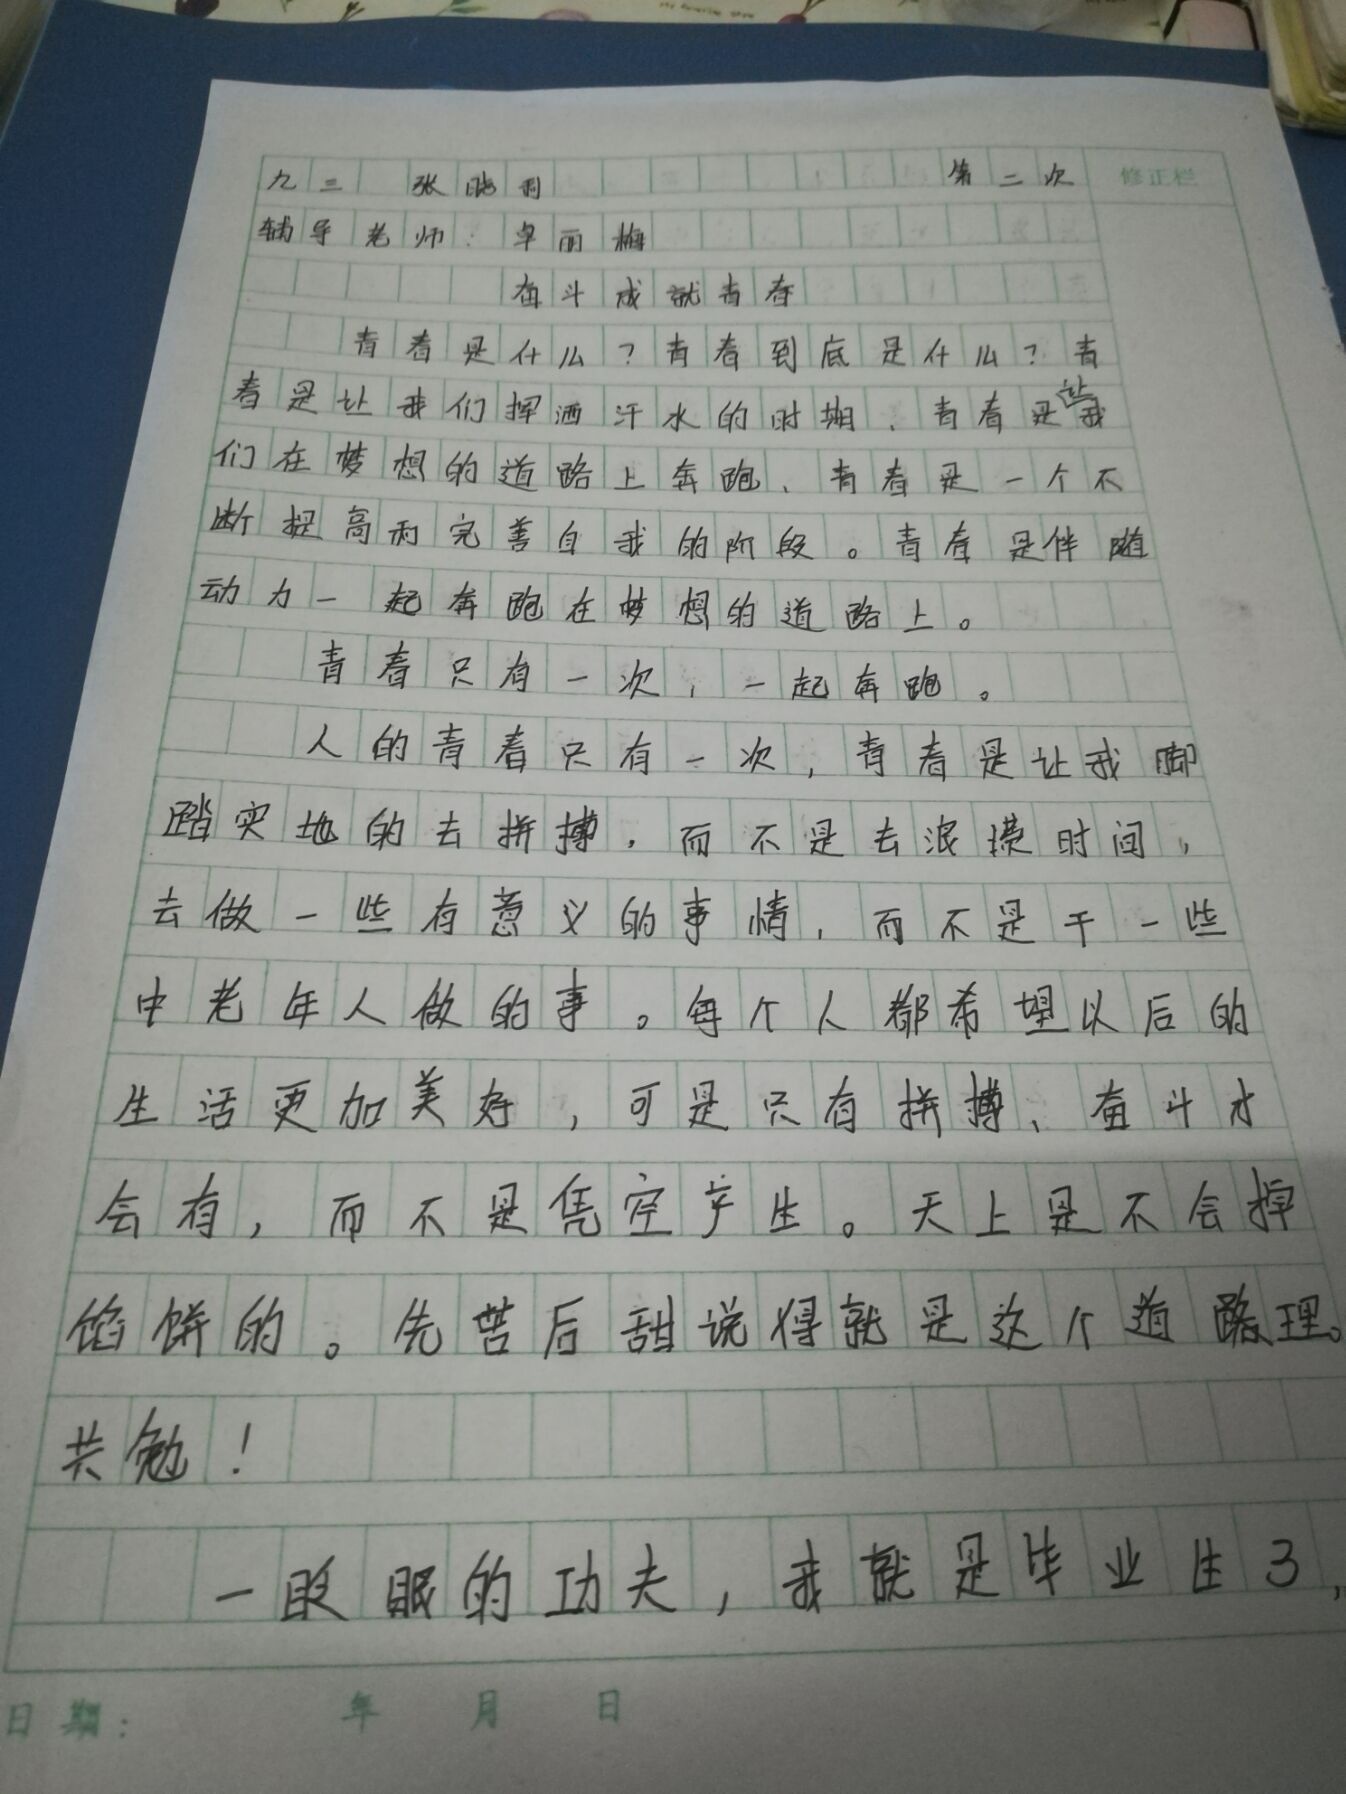 九三 张晓利 第二次 修正栏
辅导老师：卓丽梅
奋斗成就青春
青春是什么？青春到底是什么？青
春是让我们挥洒汗水的时期、青春是让我
们在梦想的道路上奔跑、青春是一个不
断提高和完善自我的阶段。青春是伴随
动力一起奔跑在梦想的道路上。
青春只有一次，一起奔跑。
人的青春只有一次，青春是让我脚
踏实地的去拼搏，而不是去浪费时间，
去做一些有意义的事情，而不是干一些
中老年人做的事。每个人都希望以后的
生活更加美好，可是只有拼搏、奋斗才
会有，而不是凭空产生。天上是不会掉
馅饼的。先苦后甜说得就是这个道理。
共勉！
一眨眼的功夫，我就是毕业生了，
日期： 年 月 日